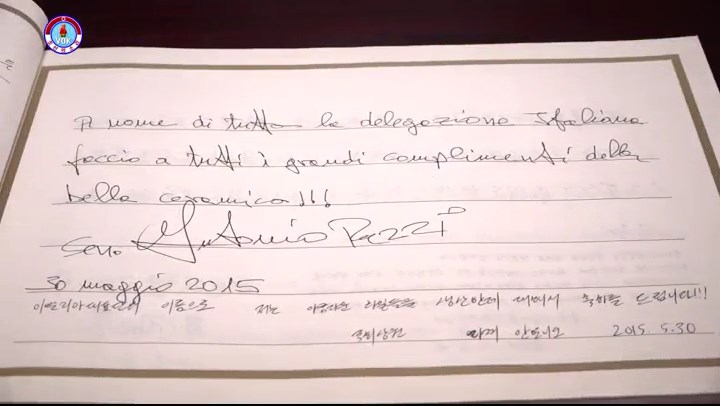 VOK
A nome di tutta la delegazione Italiana
faccio a tutti i grandi complimenti della
bella ceramica!!!
Sen. Antonio Razzi
30 maggio 2015
이딸리아대표단의 이름으로 저는 아름다운 생산한데 대해서 축하를 드립니다!!!
국회상원 안또니오 2015. 5. 30